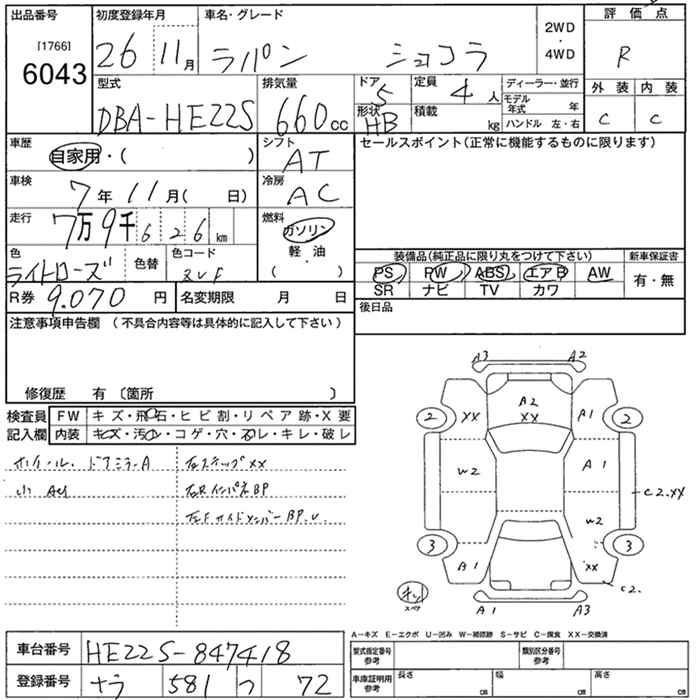 出品番号
[1766]
6043
初度登録年月
26 11月
車名・グレード
ラパン ショコラ
2WD
・
4WD
評価点
R
外装 内装
C C
型式
DBA-HE22S
排気量
660cc
ドア 5
形状 HB
定員 4人
積載 kg
ディーラー・並行
モデル年式 年
ハンドル 左・右
車歴
自家用・( )
シフト
AT
セールスポイント(正常に機能するものに限ります)
車検
7年11月( 日)
冷房
AC
走行
7万9千626km
燃料
ガソリン
軽・油
( )
色
ライトローズ
色替
色コード
ZVF
装備品(純正品に限り丸をつけて下さい)
新車保証書
PS PW ABS エアB AW
有・無
SR ナビ TV カワ
R券 9.070円
名変期限 月 日
後日品
注意事項申告欄(不具合内容等は具体的に記入して下さい)
修復歴 有〔箇所 〕
検査員記入欄
FW キズ・飛石・ヒビ割・リペア跡・X要
内装 キズ・汚レ・コゲ・穴・スレ・キレ・破レ
ホイール、ドアミラーA
小AU
左ステップXX
左Rインパネ BP
左Fサイドメンバー BP.U
A3 A2
A2
XX
XX A1
2 2
W2 A1
C2.XX
W2
3 3
A1 XX
C2.
A1 A3
スペア
A-キズ E-エクボ U-凹み W-補修跡 S-サビ C-腐食 XX-交換済
車台番号
HE22S-847418
登録番号
ナラ 581 つ 72
型式指定番号
参考
類別区分番号
参考
車庫証明用
参考
長さ cm
幅 cm
高さ cm